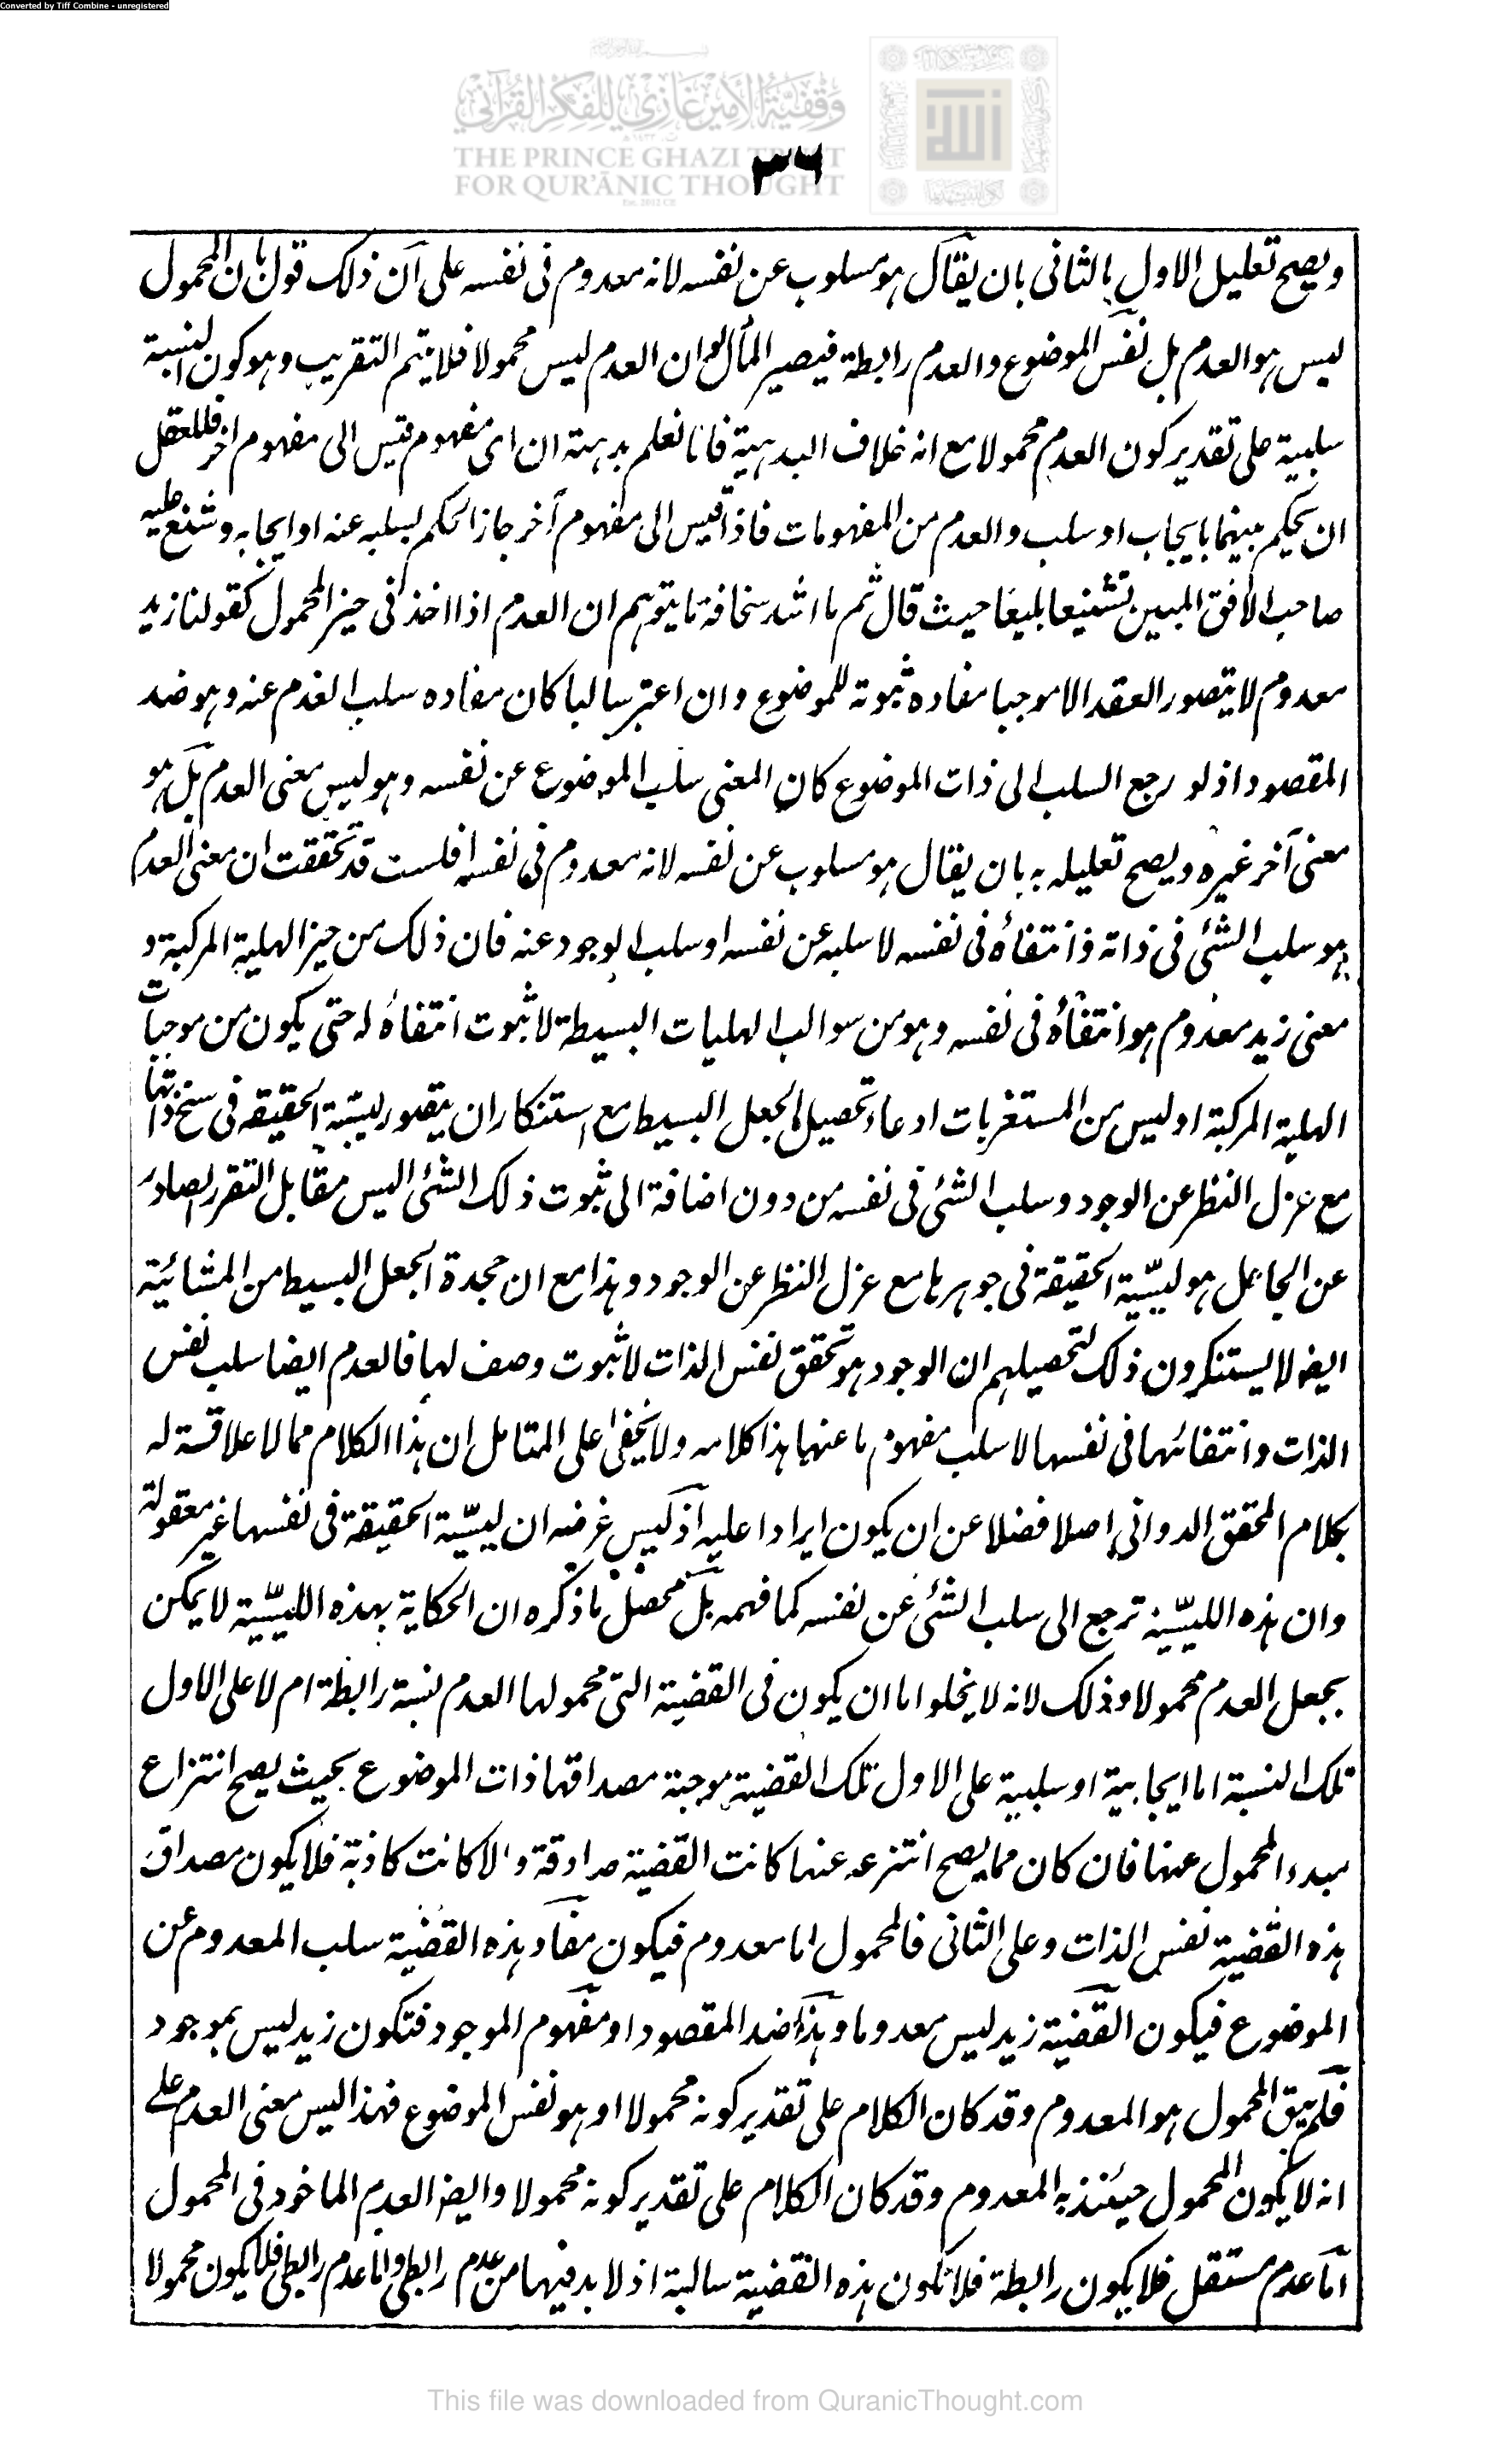 Converted by Tiff Combine - unregistered
وقفية الأمير غازي للفكر القرآني
THE PRINCE GHAZI TRUST
FOR QUR'ĀNIC THOUGHT
٣٦
ويصح تعليل الاول بالثانى بان يقال هو مسلوب عن نفسه لانه معدوم فى نفسه على ان ذلك قول بان المحمول
ليس هو العدم بل نفس الموضوع والعدم رابطة فيصير المآل ان العدم ليس محمولا فلا يتم التقريب وهو كون النسبة
سلبية على تقدير كون العدم محمولا مع انه خلاف البديهية فانا نعلم بديهة ان اى مفهوم قيس الى مفهوم اخر فللعقل
ان يحكم بينهما بايجاب او سلب والعدم من المفهومات فاذا قيس الى مفهوم آخر جاز الحكم بسلبه عنه او ايجابه وشنع عليه
صاحب الافق المبين تشنيعا بليغا حيث قال ثم ما اشد سخافة ما يتوهم ان العدم اذا اخذ فى حيز المحمول كقولنا زيد
معدوم لا يتصور العقد الا موجبا مفاده ثبوته للموضوع وان اعتبر سالبا كان مفاده سلب العدم عنه وهو ضد
المقصود اذ لو رجع السلب الى ذات الموضوع كان المعنى سلب الموضوع عن نفسه وهو ليس معنى العدم بل هو
معنى آخر غيره ويصح تعليله به بان يقال هو مسلوب عن نفسه لانه معدوم فى نفسه افلست قد تحققت ان معنى العدم
هو سلب الشئ فى ذاته وانتفاؤه فى نفسه لا سلبه عن نفسه او سلب الوجود عنه فان ذلك من حيز الهلية المركبة و
معنى زيد معدوم هو انتفاؤه فى نفسه وهو من سوالب الهليات البسيطة لا ثبوت انتفاؤه له حتى يكون من موجبات
الهلية المركبة او ليس من المستغربات ادعاء تحصيل الجعل البسيط مع استنكار ان يتصور ليسية الحقيقة فى سنخ ذاتها
مع عزل النظر عن الوجود وسلب الشئ فى نفسه من دون اضافة الى ثبوت ذلك الشئ اليس مقابل التقرر الصادر
عن الجاعل هو ليسية الحقيقة فى جوهرها مع عزل النظر عن الوجود وهذا مع ان جحدة الجعل البسيط من المشائية
ايضا لا يستنكرون ذلك لتحصيلهم ان الوجود هو تحقق نفس الذات لا ثبوت وصف لها فالعدم ايضا سلب نفس
الذات وانتفائها فى نفسها لا سلب مفهوم ما عنها هذا كلامه ولا يخفى على المتامل ان هذا الكلام مما لا علاقة له
بكلام المحقق الدوانى اصلا فضلا عن ان يكون ايرادا عليه اذ ليس غرضه ان ليسية الحقيقة فى نفسها غير معقولة
وان هذه الليسية ترجع الى سلب الشئ عن نفسه كما فهمه بل محصل ما ذكره ان الحكاية بهذه الليسية لا يمكن
بجعل العدم محمولا وذلك لانه لا يخلو اما ان يكون فى القضية التى محمولها العدم نسبة رابطة ام لا على الاول
تلك النسبة اما ايجابية او سلبية على الاول تلك القضية موجبة مصداقها ذات الموضوع بحيث يصح انتزاع
مبدء المحمول عنها فان كان مما يصح انتزعه عنها كانت القضية صادقة والا كانت كاذبة فلا يكون مصداق
هذه القضية نفس الذات وعلى الثانى فالمحمول اما معدوم فيكون مفاد هذه القضية سلب المعدوم عن
الموضوع فيكون القضية زيد ليس معدوما وهذا ضد المقصود او مفهوم الموجود فتكون زيد ليس بموجود
فلم يبق المحمول هو المعدوم وقد كان الكلام على تقدير كونه محمولا او هو نفس الموضوع فهذا ليس معنى العدم على
انه لا يكون المحمول حينئذ به المعدوم وقد كان الكلام على تقدير كونه محمولا وايضا العدم الماخوذ فى المحمول
اما عدم مستقل فلا يكون رابطة فلا تكون هذه القضية سالبة اذ لا بد فيها من عدم رابطى واما عدم رابطى فلا يكون محمولا
This file was downloaded from QuranicThought.com